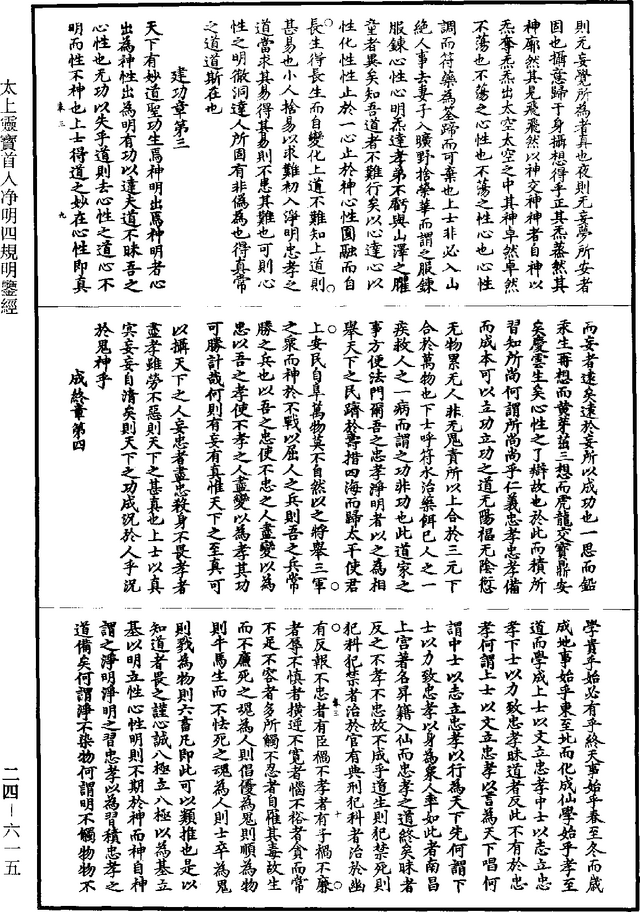 則无妄覺所為者真也夜則无妄夢所安者
固也攝意歸于身攝想得乎正其炁蒸然其
神廓然其見飛飛然以神交神神者自神以
炁奪炁炁出太空太空之中其神卓然卓然
不蕩也不蕩之心性也不蕩之性心也心性
調而符藥為筌蹄而可棄也上士非必入山
絕人事去妻子入曠野捨榮華而謂之服鍊
服鍊心性心明炁達孝弟不虧與山澤之臞
童者異矣知吾道者不難行矣以心達心以
性化性性止於一心止於神心性圓融而自
長生得長生而自變化上道不難知上道則
甚易也小人捨易以求難初入淨明忠孝之
道當求其易得其易則不患其難也可則心
性之明徹洞達人所固有非偽為也得真常
之道道斯在也
建功章第三
天下有妙道聖功生焉神明出焉神明者心
出為神性出為明有功以達夫道不昧吾之
心性也无功以失乎道則去心性之道心不
明而性不神也上士得道之妙在心性即真
而妄者遠矣遠於妄所以成功也一思而鉛
汞生再想而黄芽茁三想而虎龍交寶鼎安
矣慶雲生矣心性之了辯故也於此而積所
習知所尚何謂所尚尚乎仁義忠孝忠孝備
而成本可以立功立功之道无陽福无陰愆
无物累无人非无鬼責所以上合於三元下
合於萬物也下士呼符水治藥餌已人之一
疾救人之一病而謂之功非功也此道家之
事方便法門爾吾之忠孝淨明者以之為相
舉天下之民躋於壽措四海而歸太平使君
上安民自阜萬物莫不自然以之將舉三軍
之衆而神於不戰以屈人之兵則吾之兵常
勝之兵也以吾之忠使不忠之人盡變以為
忠以吾之孝使不孝之人盡變以為孝其功
可勝計哉何則有妄有真惟天下之至真可
以攝天下之人妄忠者盡忠殺身不畏孝者
盡孝雖勞不惡則天下之甚真也上士以真
寘妄妄自清矣則天下之功成況於人乎況
於鬼神乎
成終章第四
學貴乎始必有乎終天事始乎春至冬而歲
成地事始乎東至北而化成仙學始乎孝至
道而學成上士以文立忠孝中士以志立忠
孝下士以力致忠孝昧道者反此不有於忠
孝何謂上士以文立忠孝以言為天下唱何
謂中士以志立忠孝以行為天下先何謂下
士以力致忠孝以身為衆人率如此者南昌
上宫著名昇籍入仙而忠孝之道終矣昧者
反之不孝不忠故不成乎道生則犯禁死則
犯科犯禁者治於官有典刑犯科者治於幽
有反報不忠者有臣禍不孝者有子禍不廉
者辱不慎者横逆不寛者惱不裕者貪而常
不足不容者多所觸不忍者自罹其毒故生
而不廉死之魂為人則倡優為鬼則順為物
則斗馬生而不怯死之魂為人則士卒為鬼
則戮為物則六畜凡即此可以類推也是以
知道者畏之謹心誠八極立八極以為基立
基以明五性心性明則不期於神而神自神
謂之淨明淨明之習忠孝以為習積忠孝之
道備矣何謂淨不染物何謂明不觸物物不
太上靈寶首入净明四規明鑒經
卷三
九
卷三
十
二四—六一五